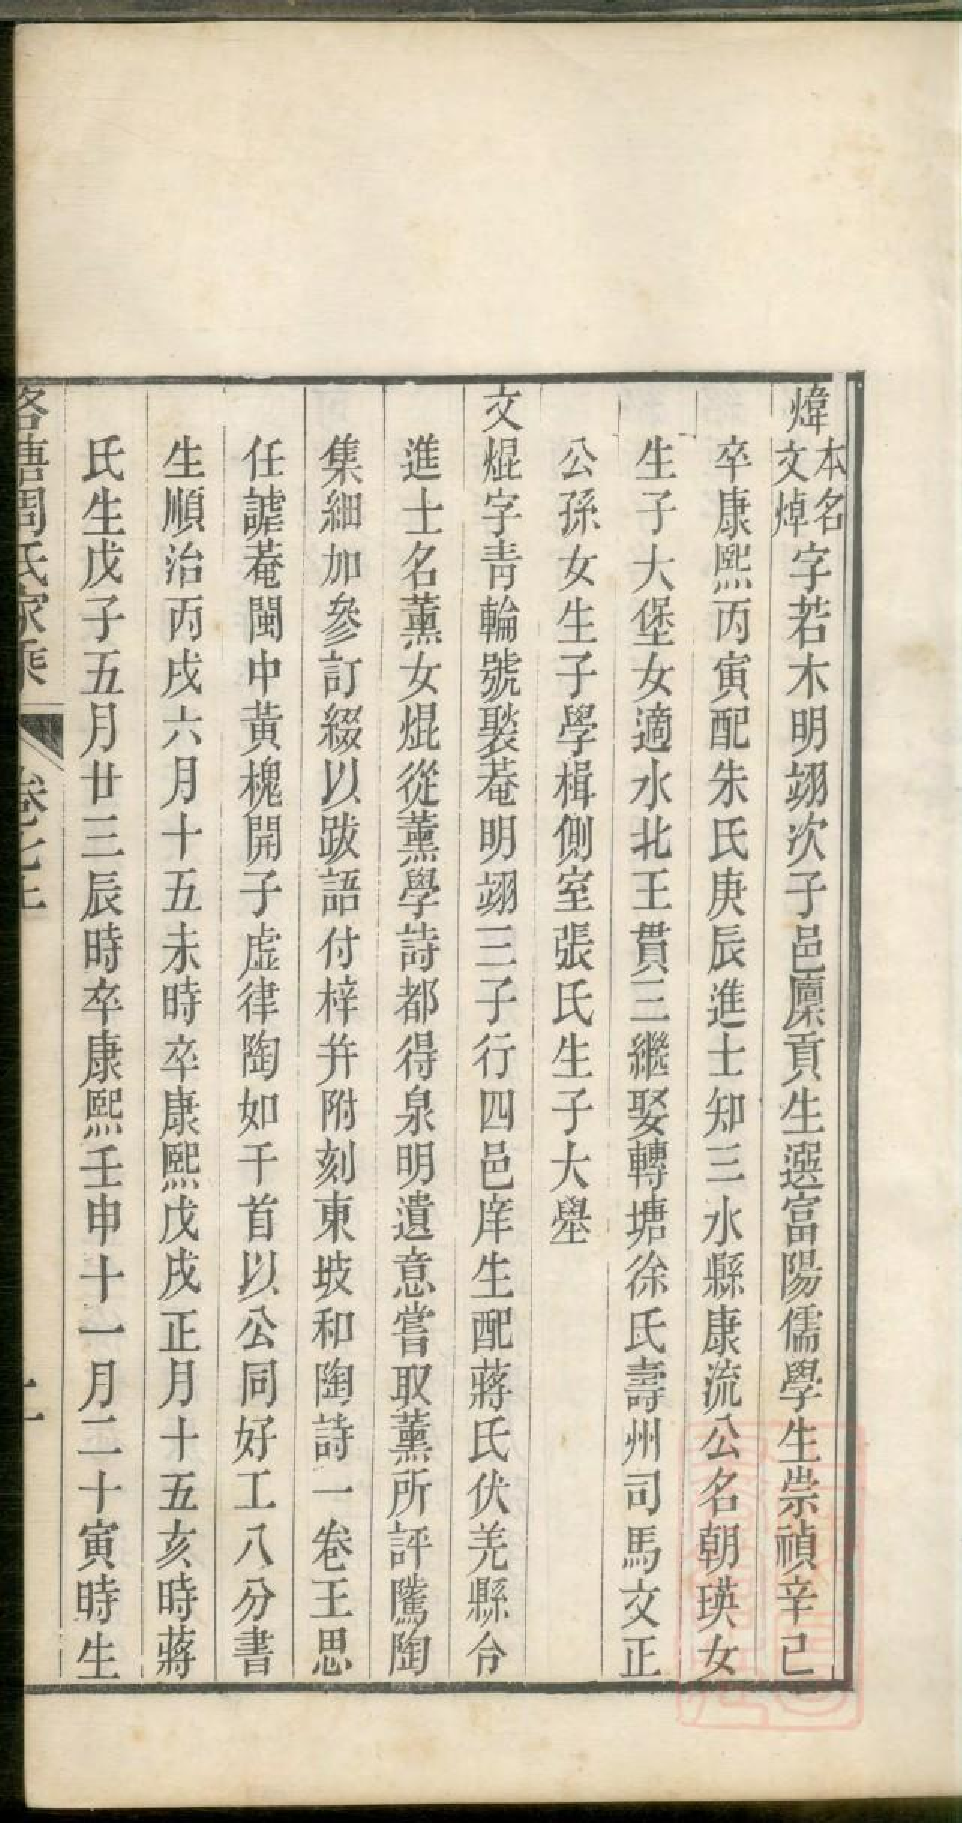 煒本名文焯字若木明翊次子邑廩貢生選富陽儒學生崇禎辛巳
卒康熙丙寅配朱氏庚辰進士知三水縣康流公名朝瑛女
生子大堡女適水北王貫三繼娶轉塘徐氏壽州司馬文正
公孫女生子學楫側室張氏生子大壆
文焜字青輪號褧菴明翊三子行四邑庠生配蔣氏伏羌縣令
進士名薰女焜從薰學詩都得泉明遺意嘗取薰所評隲陶
集細加參訂綴以跋語付梓并附刻東坡和陶詩一卷王思
任謔菴閩中黃槐開子虛律陶如干首以公同好工八分書
生順治丙戌六月十五未時卒康熙戊戌正月十五亥時蔣
氏生戊子五月廿三辰時卒康熙壬申十一月二十寅時生
洛塘周氏家乘 卷七上